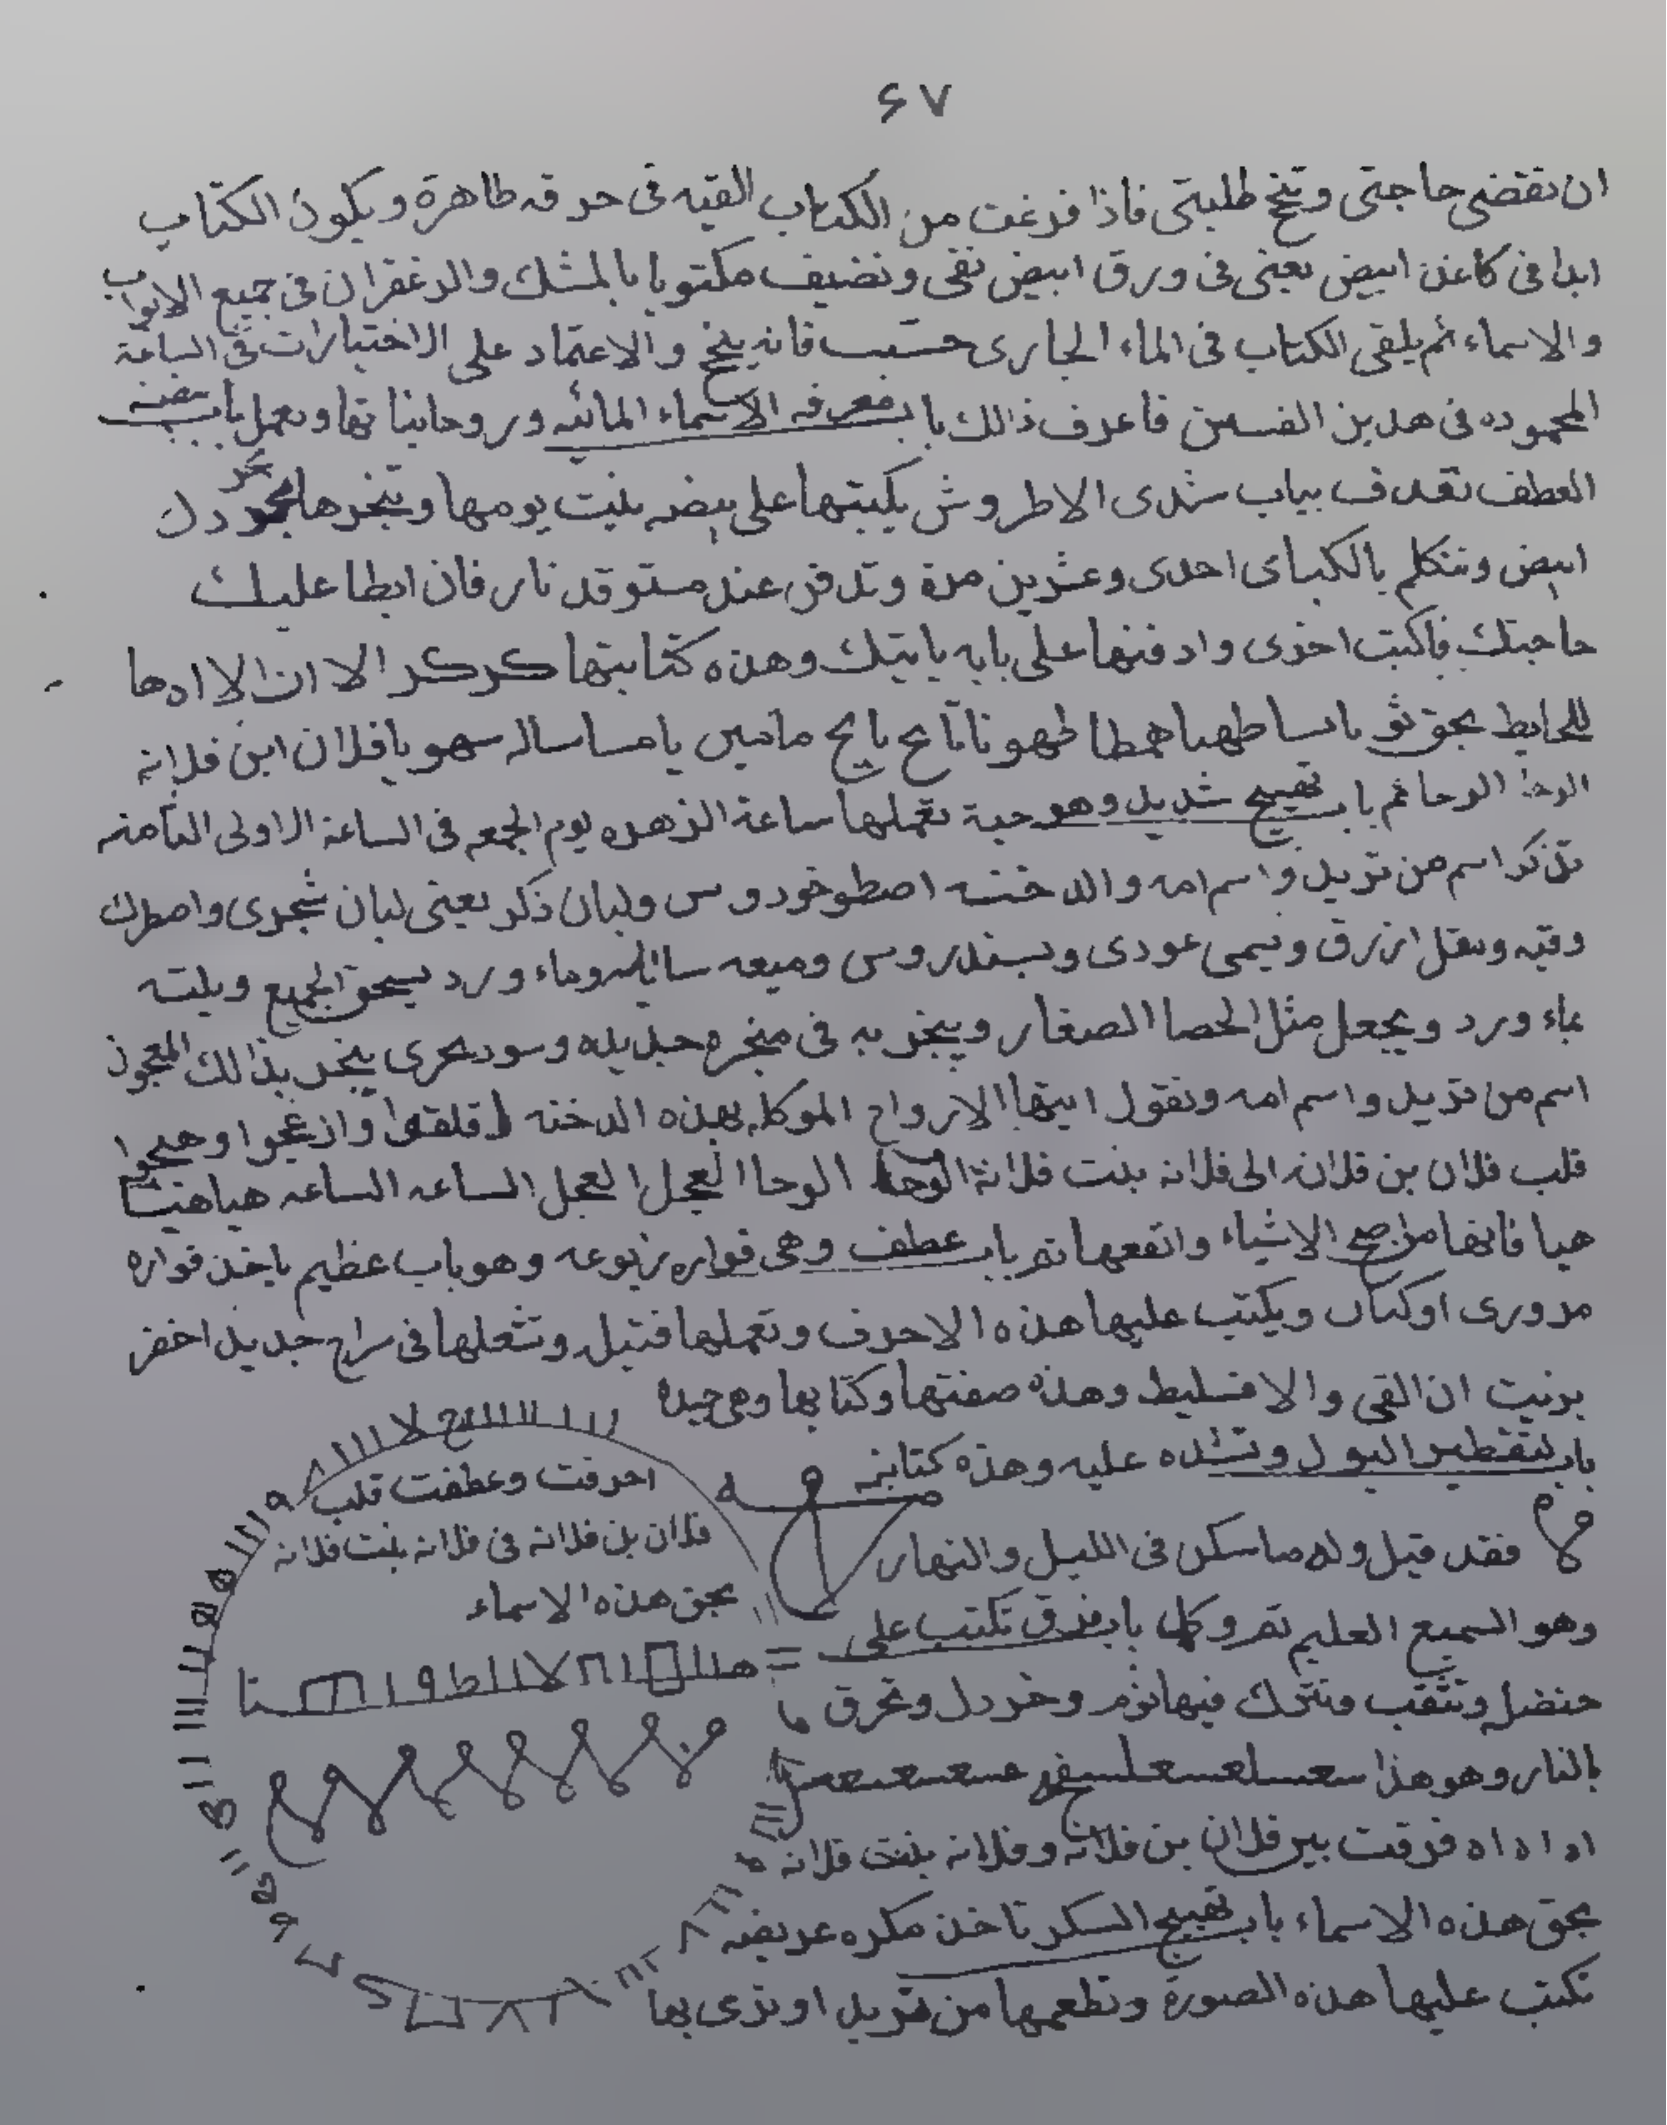 ۶۷
ان تقضى حاجتى وتنجح طلبتى فاذا فرغت من الكتاب القيه فى خرقه طاهرة ويكون الكتاب
ابدا فى كاغد ابيض يعنى فى ورق ابيض نقى ونضيف مكتوبا بالمشك والزعفران فى جميع الابواب
والاسماء ثم يلقى الكتاب فى الماء الجارى حسب فانه ينجح والاعتماد على الاختيارات فى الساعة
المحموده فى هدين القسمين فاعرف ذالك باب معرفه الاسماء المائيه وروحانياتها ونعمل باب بيضه
العطف تعرف بباب شدى الاطروش يكبتها على بيضه بنيت يومها وتبخرها بخردل
ابيض وتتكلم بالكباى احدى وعشرين مرة وتدفن عند مستوقد نار فان ابطا عليك
حاجتك فاكتب اخرى وادفنها على بابه ياتيك وهذه كتابتها كركر الا ان الا اه ها
يا فلان ابن فلانه
الوحا الوحا ثم باب تهييج شديد وهو حبة تعملها ساعة الزهره يوم الجمعه فى الساعة الاولى الثامنه
تذكر اسم من تريد واسم امه والدخنه اصطوخودوس ولبان ذكر يعنى لبان شجرى واصطرك
وقيه ومقل ازرق ويسمى عودى وسندروس وميعه سايله وماء ورد يسحق الجميع ويلته
بماء ورد ويجعل مثل الحصا الصغار ويبخر به فى مبخره حديده وسود بحرى يبخر بذالك المعجون
اسم من تريد واسم امه ونقول ايتها الارواح الموكله بهذه الدخنه اقلقوا وازعجوا وهيجوا
قلب فلان بن فلانه الى فلانه بنت فلانة الوحا الوحا العجل العجل الساعه الساعه هيا هيا
هيا فانها من اصح الاشياء وانفعها تم باب عطف وهى قواره زبوعه وهو باب عظيم ياخذ قواره
مرورى او كتان ويكتب عليها هذه الاحرف وتعملها فتيل وتشعلها فى سراج جديد اخضر
بزنيت ان القى والا فسليط وهذه صفتها وكتابها وهى جيدة
باب لتقطير البول وتشده عليه وهذه كتابته
فقد قيل وله ما سكن فى الليل والنهار
وهو السميع العليم تم وكل باب فرق تكتب على
حنضله وتثقب وتترك فيها ثوم وخردل وتحرق
بالنار وهو هذا
اه اه اه فرقت بين فلان بن فلانه وفلانه بنت فلانه
بحق هذه الاسماء باب تهييج السكر تاخذ مكره عريضه
تكتب عليها هذه الصورة وتطعمها من تريد او ترى بها
احرقت وعطفت قلب
فلان بن فلانه فى فلانه بنت فلانه
بحق هذه الاسماء